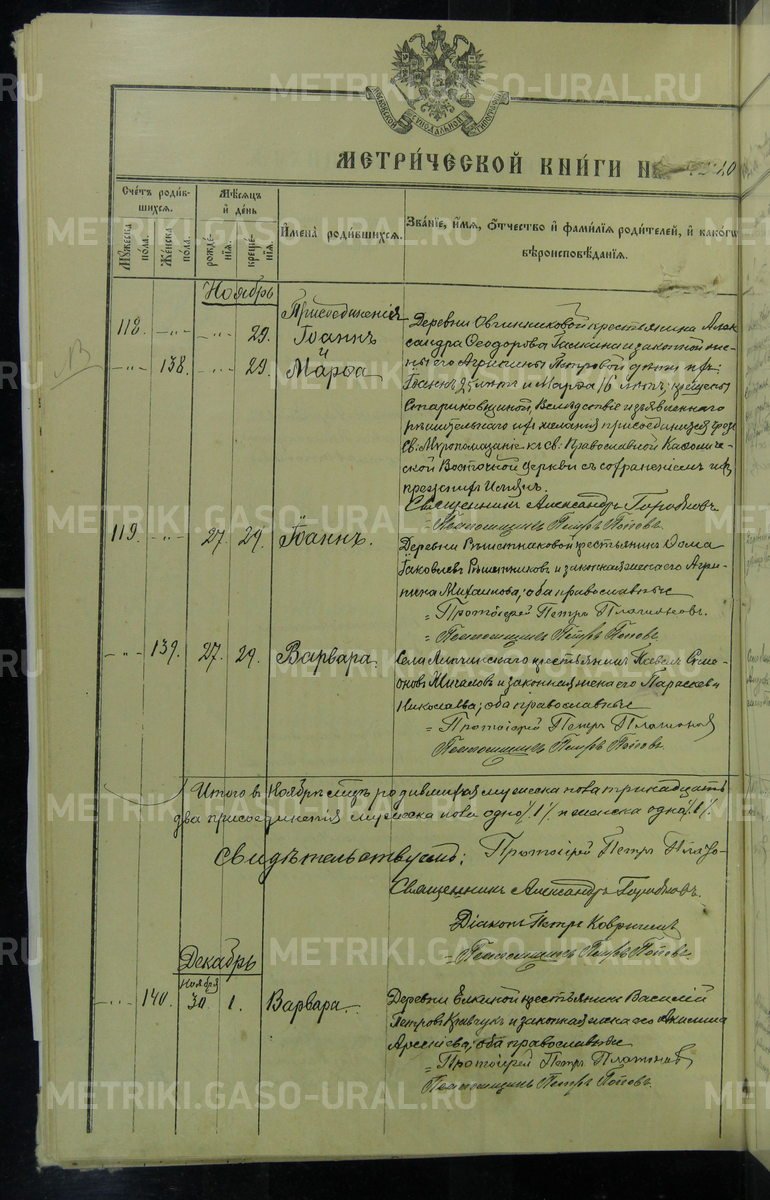 МОСКОВСКОЙ СѴНОДАЛЬНОЙ ТИПОГРАФІИ
МЕТРИ́ЧЕСКОЙ КНИ́ГИ Н
Сче́тъ роди́в-
шихся.
Му́жеска по́ла.
Же́нска по́ла.
Мѣ́сяцъ
и҆ де́нь
рожде́нїѧ.
креще́нїѧ.
И҆мена̀ роди́вшихся.
Зва́нїе, и҆́мѧ, ѻ҆́тчество и҆ фами́лїѧ роди́телей, и҆ како́гѡ
вѣроисповѣ́данїѧ.
Ноябрь
Присоединенія
118. -"- -"- 29. Іоаннъ
и
-"- 138. -"- 29. Марѳа
Деревни Овчинниковой крестьянина Алек-
сандра Ѳеодорова и законной же-
ны его Агрипины Петровой дѣти ихъ:
Іоаннъ 25 лѣтъ и Марѳа 16 лѣтъ; крещены
Стариковщиной, Вслѣдствіе изъявленнаго
рѣшительнаго ихъ желанія присоединился чрезъ
Св: Мѵропомазаніе къ Св: Православной Каѳоличе-
ской Восточной Церкви съ сохраненіемъ ихъ
прежнихъ Именъ.
Священникъ Александръ
= Псаломщикъ Петръ Поповъ.
119. -"- 27. 29. Іоаннъ.
Деревни крестьянинъ Дома
Іаковлевъ Рѣшетниковъ и законная жена его Агри-
пина Михаилова; оба православные
= Протоіерей Петръ Платоновъ.
= Псаломщикъ Петръ Поповъ
-"- 139. 27. 29. Варвара.
Села крестьянинъ Павелъ Сѵме-
оновъ и законная жена его Параскева
Николаева; оба православные
= Протоіерей Петръ Платоновъ
Псаломщикъ Петръ Поповъ.
Итого въ Ноябрѣ мцѣ родившихся мужеска пола тринадцать
два присоединенія мужеска пола одно /1/ и женска одно /1/.
Свидѣтельствуютъ: Протоіерей Петръ
Священникъ Александръ
Діаконъ Петръ
= Псаломщикъ Петръ Поповъ.
Декабрь
Ноября
-"- 140. 30. 1. Варвара.
Деревни Елкиной крестьянинъ Василій
Петровъ Кравчукъ и законная жена его Акилина
Арсеніева; оба православные
= Протоіерей Петръ Платоновъ
Псаломщикъ Петръ Поповъ.
METRIKI.GASO-URAL.RU